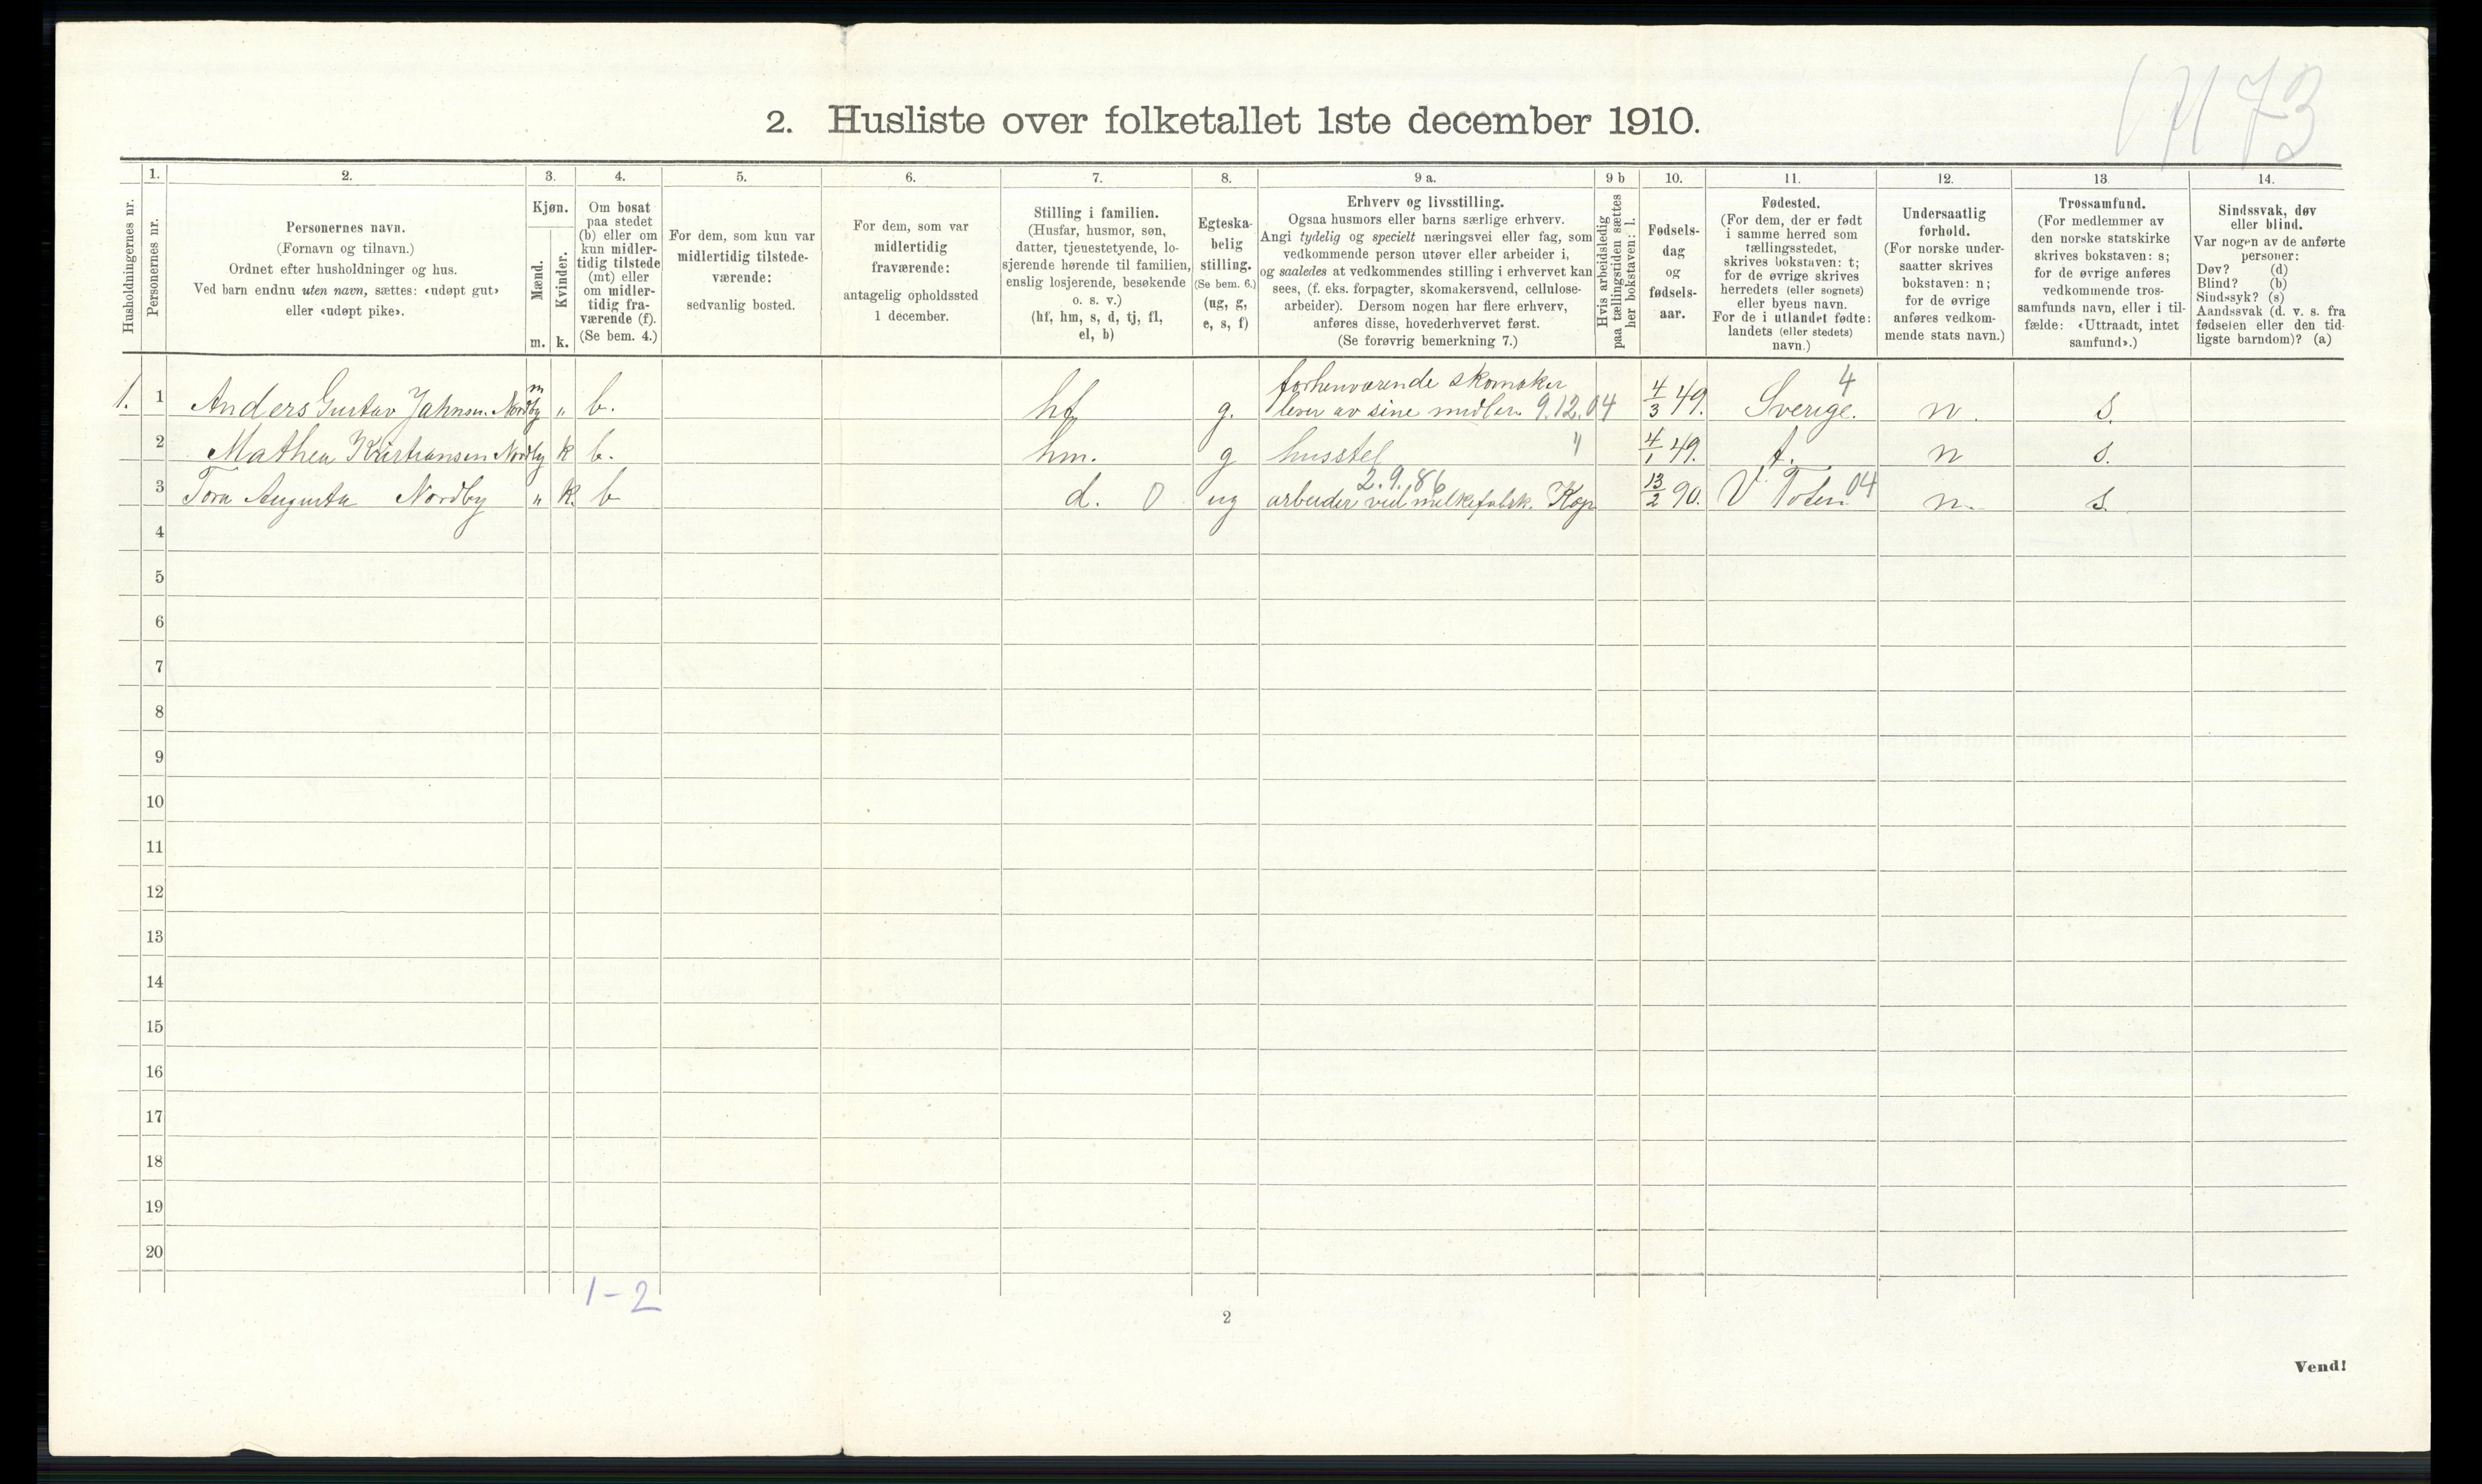 1 71 73
2. Husliste over folketallet 1ste december 1910.
Husholdningernes nr.
1.
Personernes nr.
2.
Personernes navn.
(Fornavn og tilnavn.)
Ordnet efter husholdninger og hus.
Ved barn endnu uten navn, sættes: «udøpt gut»
eller «udøpt pike».
3.
Kjøn.
Mænd.
Kvinder.
m. k.
4.
Om bosat
paa stedet
(b) eller om
kun midler-
tidig tilstede
(mt) eller
om midler-
tidig fra-
værende (f).
(Se bem. 4.)
5.
For dem, som kun var
midlertidig tilstede-
værende:
sedvanlig bosted.
6.
For dem, som var
midlertidig
fraværende:
antagelig opholdssted
1 december.
7.
Stilling i familien.
(Husfar, husmor, søn,
datter, tjenestetyende, lo-
sjerende hørende til familien,
enslig losjerende, besøkende
o. s. v.)
(hf, hm, s, d, tj, fl,
el, b)
8.
Egteska-
belig
stilling.
(Se bem. 6.)
(ug, g,
e, s, f)
9 a.
Erhverv og livsstilling.
Ogsaa husmors eller barns særlige erhverv.
Angi tydelig og specielt næringsvei eller fag, som
vedkommende person utøver eller arbeider i,
og saaledes at vedkommendes stilling i erhvervet kan
sees, (f. eks. forpagter, skomakersvend, cellulose-
arbeider). Dersom nogen har flere erhverv,
anføres disse, hovederhvervet først.
(Se forøvrig bemerkning 7.)
9 b
Hvis arbeidsledig
paa tællingstiden sættes
her bokstaven: l.
10.
Fødsels-
dag
og
fødsels-
aar.
11.
Fødested.
(For dem, der er født
i samme herred som
tællingsstedet,
skrives bokstaven: t;
for de øvrige skrives
herredets (eller sognets)
eller byens navn.
For de i utlandet fødte:
landets (eller stedets)
navn.)
12.
Undersaatlig
forhold.
(For norske under-
saatter skrives
bokstaven: n;
for de øvrige
anføres vedkom-
mende stats navn.)
13
Trossamfund.
(For medlemmer av
den norske statskirke
skrives bokstaven: s;
for de øvrige anføres
vedkommende tros-
samfunds navn, eller i til-
fælde: «Uttraadt, intet
samfund».)
14.
Sindssvak, døv
eller blind.
Var nogen av de anførte
personer:
Døv? (d)
Blind? (b)
Sindssyk? (s)
Aandssvak (d. v. s. fra
fødselen eller den tid-
ligste barndom)? (a)
forhenværende skomaker 4
1. 1 Anders Gustav Jahnsen Nordby m „ b. hf g. lever av sine midler. 9.12.04 4/3 49. Sverige. n. s.
2 Mathea Kristiansen Nordby k b. hm. g husstel " 4/1 49. t. n s.
2.9.86 04
3 Tora Augusta Nordby „ k. b d. 0 ug arbeider ved melkefabrk. Kap 13/2 90. V Toten n. s.
4
5
6
7
8
9
10
11
12
13
14
15
16
17
18
19
20
1-2
2
Vend!